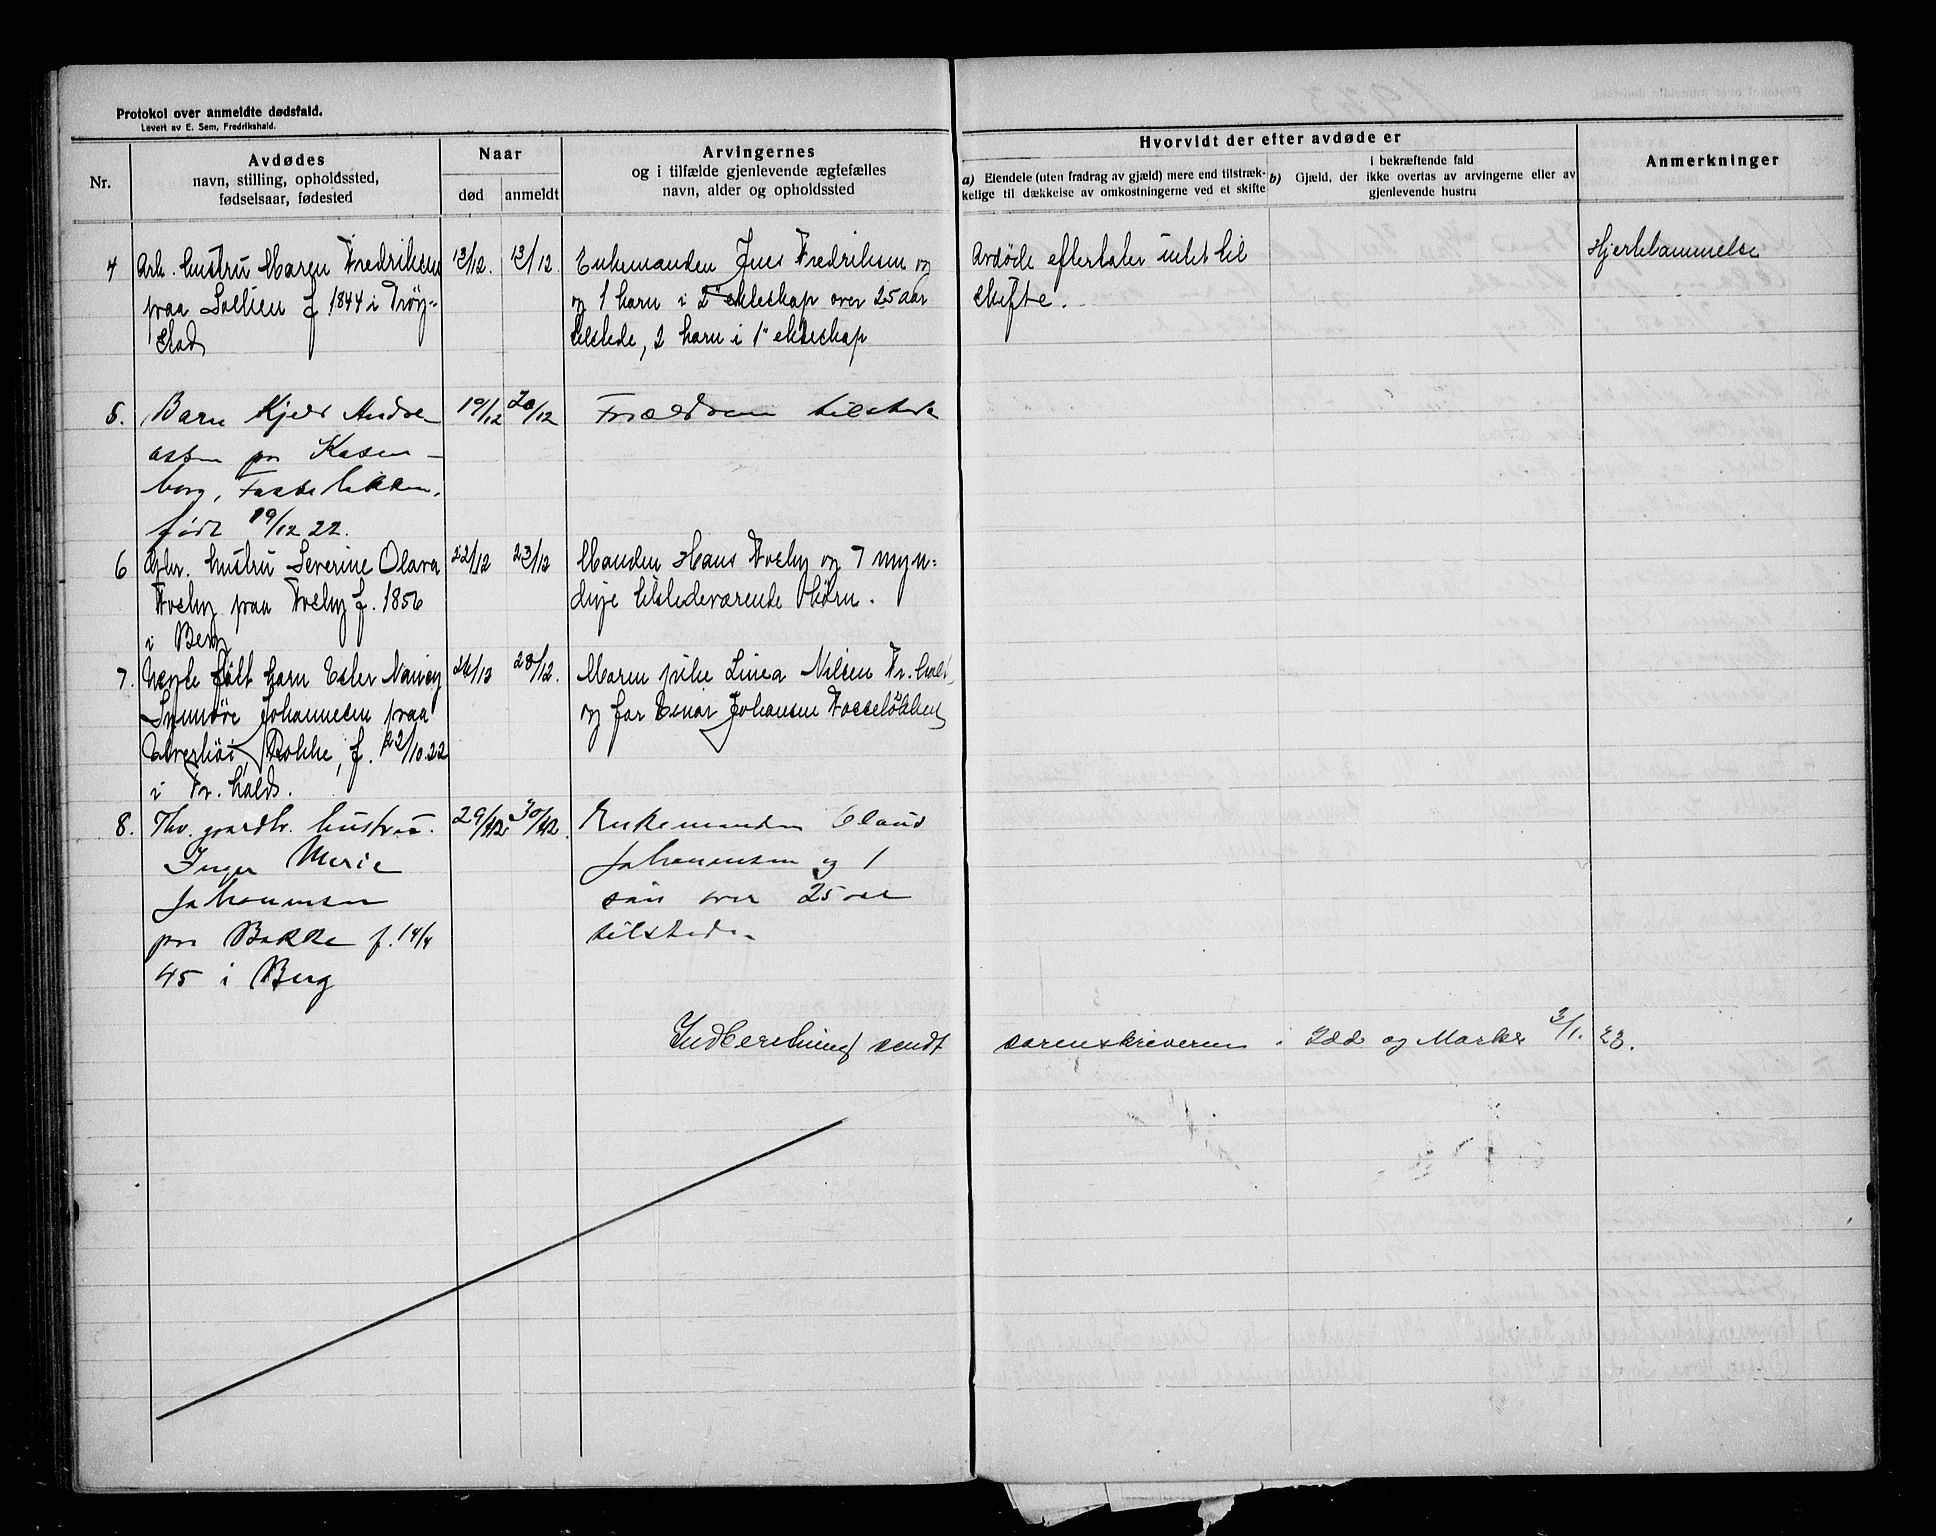 Protokol over anmeldte dødsfald.
Levert av E. Sem, Fredrikshald.
Nr.
Avdødes
navn, stilling, opholdssted,
fødselsaar, fødested
Naar
død
anmeldt
Arvingernes
og i tilfælde gjenlevende ægtefælles
navn, alder og opholdssted
Hvorvidt der efter avdøde er
a) Eiendele (uten fradrag av gjæld) mere end tilstræk-
kelige til dækkelse av omkostningerne ved et skifte
b) Gjæld, der i bekræftende fald
ikke overtas av arvingerne eller av
gjenlevende hustru
Anmerkninger
4 Arb. hustru Maren Fredriksen 13/12. 13/12. Enkemanden Jens Fredriksen og Avdøde efterlater intet til Hjertelammelse
praa f 1844 i Trøg- og 1 barn i 2" ekteskap over 25 aar skifte.
stad tilstede, 2 barn i 1" ekteskap
5. Barn Kjeld Andre- 19/12 20/12 Forældrene tilstede
assen pr
borg, Tistedalen,
født 19/12 22.
6 Gbr. hustru Severine Olava 22/12 23/12 Manden Hans Fosby og 7 myn=
Fosby praa Fosby f. 1856 dige tilstedeværende børn.
i Berg
7. Uægte født barn Ester Nancy 26/12 28/12. Moren pike Linea Nilsen Fr.hald,
Synnöve Johannesen praa og far Einar Johansen Fosseløkken
Rokke, f. 22/10.22
i Fr. halds.
8. Fhv. gaardbr. hustru 29/12 30/12. Enkemanden Claus
Inger Marie Johannesen og 1
Johannesen søn over 25 aar
pr Bakke f. 14/4 tilstede.
45 i Berg
Indberetning sendt sorenskriveren i Idd og Marker 3/1. 23.